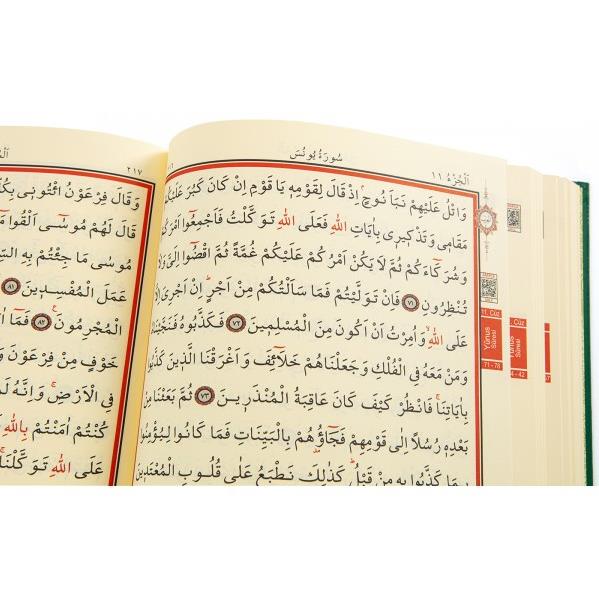 سُورَةُ يُونُسَ
اَلْجُزْءُ ١١
وَاتْلُ عَلَيْهِمْ نَبَاَ نُوحٍۢ اِذْ قَالَ لِقَوْمِه۪ يَا قَوْمِ اِنْ كَانَ كَبُرَ عَلَيْكُمْ
مَقَام۪ي وَتَذْك۪ير۪ي بِاٰيَاتِ اللّٰهِ فَعَلَى اللّٰهِ تَوَكَّلْتُ فَاَجْمِعُٓوا اَمْرَكُمْ
وَشُرَكَٓاءَكُمْ ثُمَّ لَا يَكُنْ اَمْرُكُمْ عَلَيْكُمْ غُمَّةً ثُمَّ اقْضُٓوا اِلَيَّ وَلَا
تُنْظِرُونِ ﴿٧١﴾ فَاِنْ تَوَلَّيْتُمْ فَمَا سَاَلْتُكُمْ مِنْ اَجْرٍۜ اِنْ اَجْرِيَ اِلَّا
عَلَى اللّٰهِۙ وَاُمِرْتُ اَنْ اَكُونَ مِنَ الْمُسْلِم۪ينَ ﴿٧٢﴾ فَكَذَّبُوهُ فَنَجَّيْنَاهُ
وَمَنْ مَعَهُ فِي الْفُلْكِ وَجَعَلْنَاهُمْ خَلَٓائِفَ وَاَغْرَقْنَا الَّذ۪ينَ كَذَّبُوا
بِاٰيَاتِنَاۚ فَانْظُرْ كَيْفَ كَانَ عَاقِبَةُ الْمُنْذَر۪ينَ ﴿٧٣﴾ ثُمَّ بَعَثْنَا مِنْ
بَعْدِه۪ رُسُلًا اِلٰى قَوْمِهِمْ فَجَٓاؤُ۫هُمْ بِالْبَيِّنَاتِ فَمَا كَانُوا لِيُؤْمِنُوا
بِمَا كَذَّبُوا بِه۪ مِنْ قَبْلُۜ كَذٰلِكَ نَطْبَعُ عَلٰى قُلُوبِ الْمُعْتَد۪ينَ
11. Cüz
Yûnus
Sûresi
71 - 78
Cüz
Yûnus
Sûresi
- 42
٢١٧
وَقَالَ فِرْعَوْنُ ائْتُون۪ي بِكُلِّ
قَالَ لَهُمْ مُوسٰٓى اَلْقُوا مَٓا
مُوسٰى مَا جِئْتُمْ بِهِ
عَمَلَ الْمُفْسِد۪ينَ ﴿٨١﴾
الْمُجْرِمُونَ۟ ﴿٨٢﴾ فَمَٓا
خَوْفٍ مِنْ فِرْعَوْنَ
فِي الْاَرْضِۚ وَاِنَّهُ
كُنْتُمْ اٰمَنْتُمْ بِاللّٰهِ
عَلَى اللّٰهِ تَوَكَّلْنَا